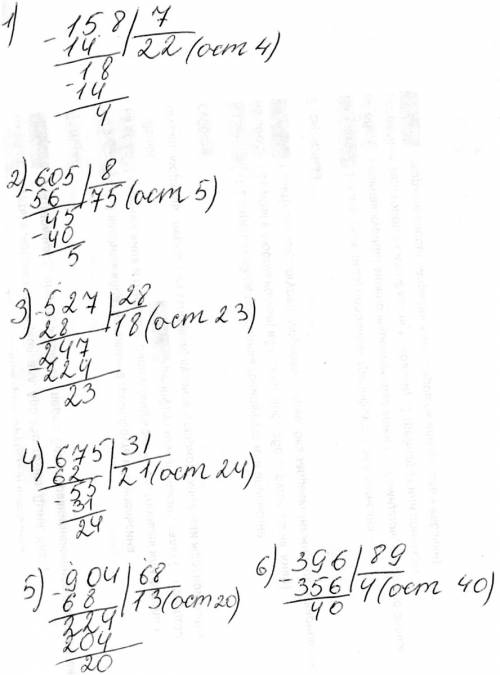 1) -158 | 7
14 22 (ост 4)
18
-14
4
2) -605 | 8
56 75 (ост 5)
45
-40
5
3) -527 | 28
28 18 (ост 23)
247
-224
23
4) -675 | 31
62 21 (ост 24)
55
-31
24
5) -904 | 68
68 13 (ост 20)
224
204
20
6) -396 | 89
356 4 (ост 40)
40